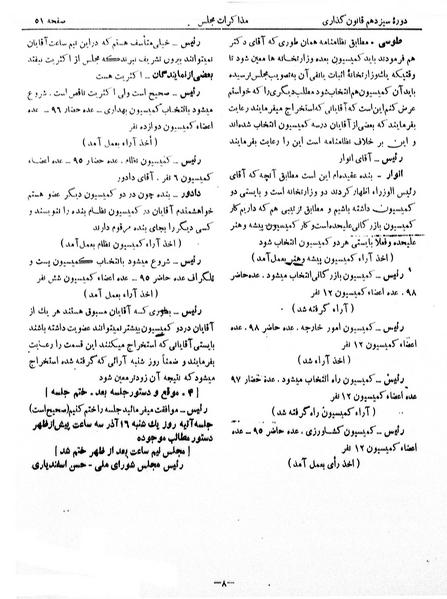 دورهٔ سیزدهم قانون گذاری
مذاکرات مجلس
صفحه ۵۱
طوسی - مطابق نظامنامه همان طوری که آقای دکتر
هم فرمودند باید بعدد وزارتخانه ها معین بود تا
وقتی که باز وزارتخانهٔ اثبات یا نفی آن به تصویب نرسیده
باید آن کمیسیون هم انتخاب شود مطلب دیگری را که خواستم
عرض کنم این است که آقایانی که استخراج میفرمایند رعایت
بفرمایند که بعضی از آقایان در سه کمیسیون انتخاب شده‌اند
و این بر خلاف نظامنامه است این را رعایت بفرمایند
رئیس - آقای انوار
انوار - بنده عقیده‌ام این است مطابق آنچه که آقای
رئیس الوزراء اظهار کردند دو وزارتخانه است و بایستی دو
کمیسیون داشته باشیم و مطابق ترتیبی هم که داریم کار
کمیسیون بازرگانی علیحده است و کار کمیسیون پیشه و هنر
علیحده و فعلا بایستی هر دو کمیسیون انتخاب شود
(اخذ آراء کمیسیون پیشه و هنر بعمل آمد)
رئیس - کمیسیون بازرگانی انتخاب میشود. عده حاضر
۹۸. عده اعضاء کمیسیون ۱۲ نفر
(آراء گرفته شد)
رئیس - کمیسیون امور خارجه. عده حاضر ۹۸. عده
اعضاء کمیسیون ۱۲ نفر
(اخذ آراء شد)
رئیس - کمیسیون راه انتخاب میشود. عده حضار ۹۷
عده اعضاء کمیسیون ۱۲ نفر
(آراء کمیسیون راه گرفته شد)
رئیس - کمیسیون کشاورزی. عده حضار ۹۵ - عده
اعضاء کمیسیون ۱۲ نفر
(اخذ رأی بعمل آمد)
رئیس - خیلی متأسف هستم که در این نیم ساعت آقایان
نمیتوانند بیرون تشریف نبرند که مجلس از اکثریت نیفتد
بعضی از نمایندگان - اکثریت هست
رئیس - صحیح است ولی اکثریت ناقص است. شروع
میشود بانتخاب کمیسیون بهداری - عده حضار ۹۶ - عده
اعضاء کمیسیون دوازده نفر
(اخذ آراء بعمل آمد)
رئیس - کمیسیون نظام. عده حضار ۹۵ - عده اعضاء
کمیسیون ۶ نفر. آقای دادور
دادور - بنده چون در دو کمیسیون دیگر عضو هستم
خواهشمندم آقایان در کمیسیون نظام بنده را ننویسند و
کسی دیگر را بجای بنده مرقوم دارند
(اخذ آراء کمیسیون نظام بعمل آمد)
رئیس - شروع میشود بانتخاب کمیسیون پست و
تلگراف عده حاضر ۹۵ - عده اعضاء کمیسیون شش نفر
(اخذ آراء بعمل آمد)
رئیس - بطوری که آقایان مسبوق هستند هر یک از
آقایان در دو کمیسیون بیشتر نمیتوانند عضویت داشته باشند
بایستی آقایانی که استخراج میکنند این قسمت را رعایت
بفرمایند و ضمناً روز شنبه آرائی که گرفته شده استخراج
میشود که نتیجه آن زودتر معین شود
[۴ - موقع و دستور جلسه بعد - ختم جلسه]
رئیس - موافقت میفرمائید جلسه را ختم کنیم (صحیح است)
جلسه آتیه روز یک شنبه ۱۶ آذر سه ساعت پیش از ظهر
دستور مطالب موجوده
[مجلس نیم ساعت بعد از ظهر ختم شد]
رئیس مجلس شورای ملی - حسن اسفندیاری
-۸-